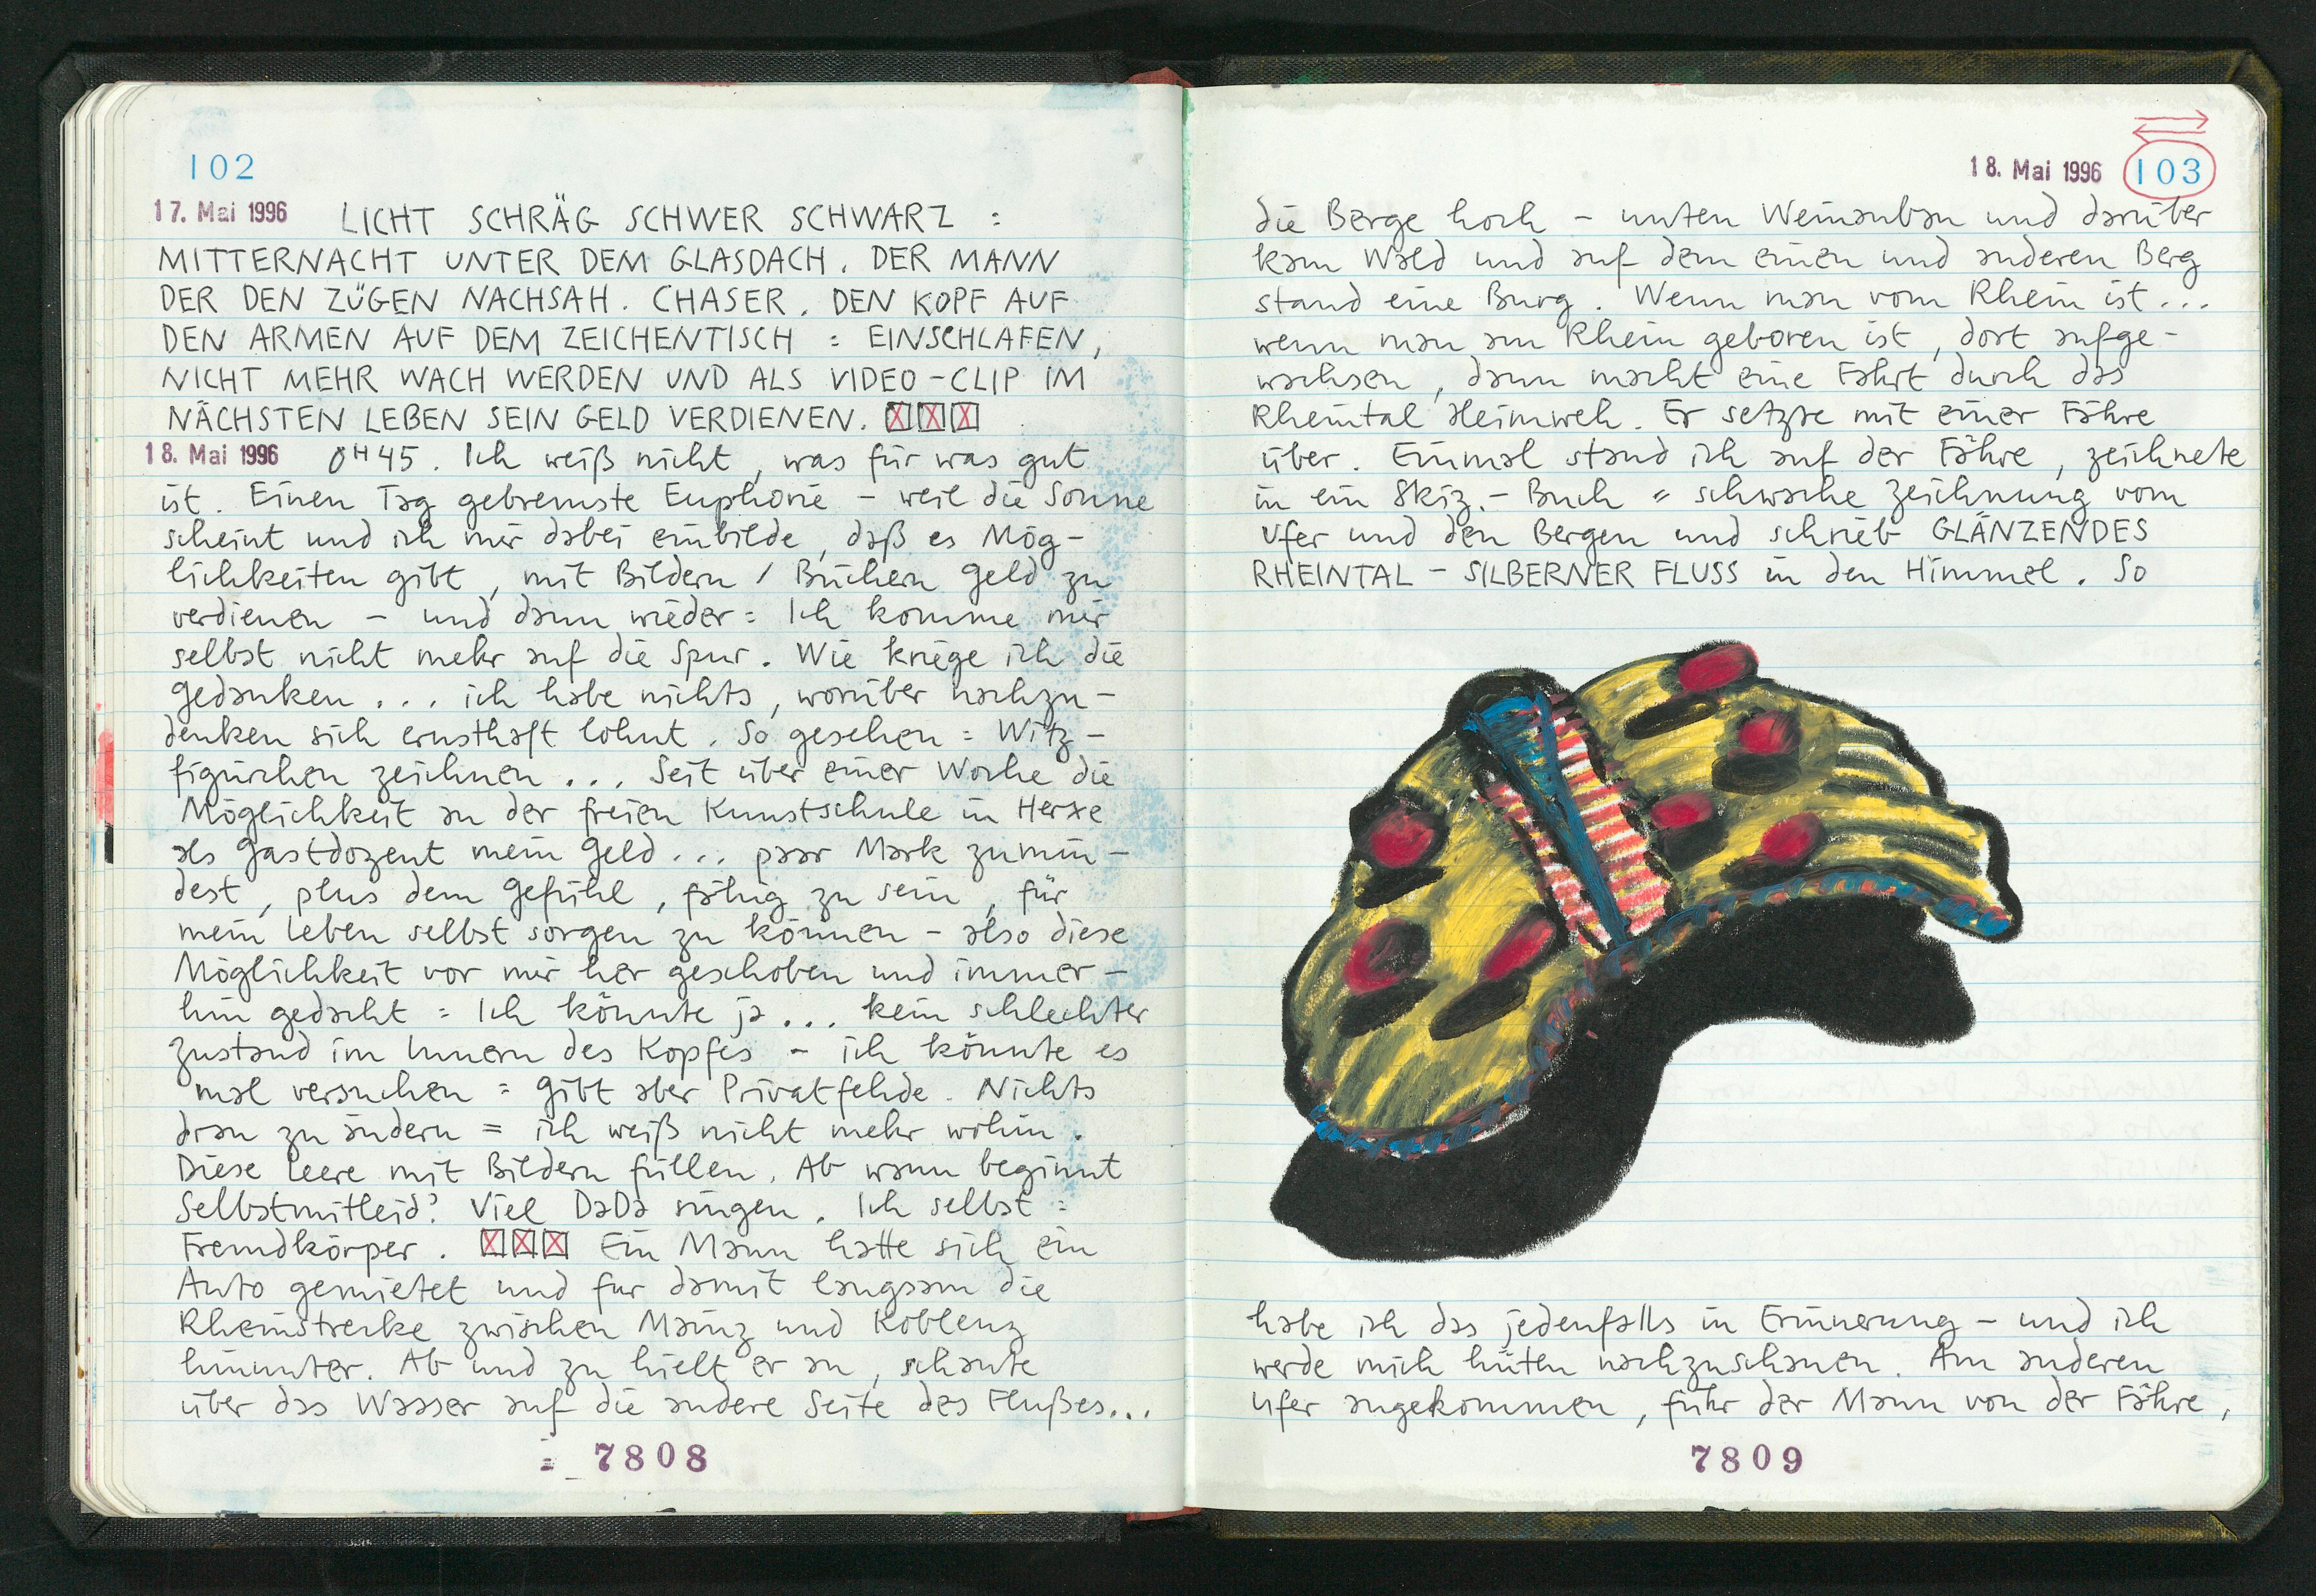 102
17. Mai 1996 LICHT SCHRÄG SCHWER SCHWARZ :
MITTERNACHT UNTER DEM GLASDACH. DER MANN
DER DEN ZÜGEN NACHSAH. CHASER. DEN KOPF AUF
DEN ARMEN AUF DEM ZEICHENTISCH : EINSCHLAFEN,
NICHT MEHR WACH WERDEN UND ALS VIDEO-CLIP IM
NÄCHSTEN LEBEN SEIN GELD VERDIENEN. XXX
18. Mai 1996 0H45. Ich weiß nicht, was für was gut
ist. Einen Tag gebremste Euphorie – weil die Sonne
scheint und ich mir dabei einbilde, daß es Mög-
lichkeiten gibt, mit Bildern / Büchern Geld zu
verdienen – und dann wieder: Ich komme mir
selbst nicht mehr auf die Spur. Wie kriege ich die
Gedanken... ich habe nichts, worüber nachzu-
denken sich ernsthaft lohnt. So gesehen: Witz-
figürchen zeichnen... Seit über einer Woche die
Möglichkeit an der freien Kunstschule in
als Gastdozent mein Geld... paar Mark zumin-
dest, plus dem Gefühl, fähig zu sein, für
mein Leben selbst sorgen zu können – also diese
Möglichkeit vor mir her geschoben und immer-
hin gedacht : Ich könnte ja... kein schlechter
Zustand im Innern des Kopfes – ich könnte es
mal versuchen : Gibt aber Privatfehde. Nichts
dran zu ändern = ich weiß nicht mehr wohin.
Diese Leere mit Bildern füllen. Ab wann beginnt
Selbstmitleid? Viel DaDa singen. Ich selbst :
Fremdkörper. XXX Ein Mann hatte sich ein
Auto gemietet und fur damit langsam die
Rheinstrecke zwischen Mainz und Koblenz
hinunter. Ab und zu hielt er an, schaute
über das Wasser auf die andere Seite des Flußes...
7808
18. Mai 1996 103
die Berge hoch – unten Weinanbau und darüber
kam Wald und auf dem einen und anderen Berg
stand eine Burg. Wenn man vom Rhein ist...
wenn man am Rhein geboren ist, dort aufge-
wachsen, dann macht eine Fahrt durch das
Rheintal Heimweh. Er setzte mit einer Fähre
über. Einmal stand ich auf der Fähre, zeichnete
in ein Skiz.-Buch = schwache Zeichnung vom
Ufer und den Bergen und schrieb GLÄNZENDES
RHEINTAL – SILBERNER FLUSS in den Himmel. So
habe ich das jedenfalls in Erinnerung – und ich
werde mich hüten nachzuschauen. Am anderen
Ufer angekommen, fuhr der Mann von der Fähre,
7809